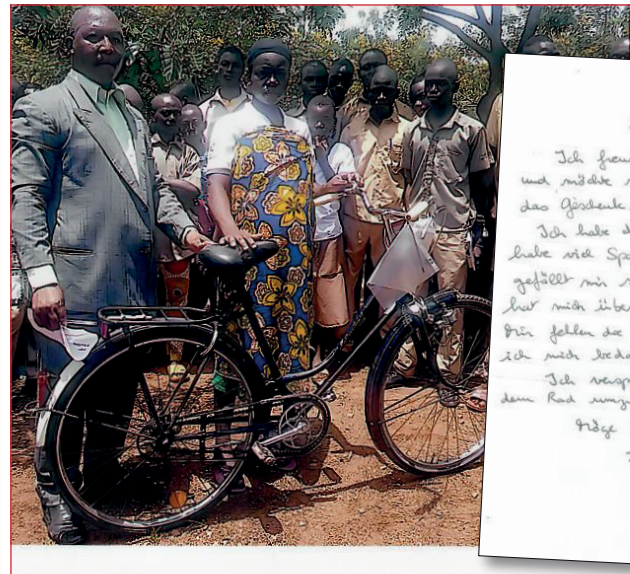 Ich freu
und möchte
das Geschenk
Ich habe d
habe viel Spa
gefällt mir s
hat mich über
Mir fehlen die
ich mich beda
Ich versp
dem Rad umzu
Möge